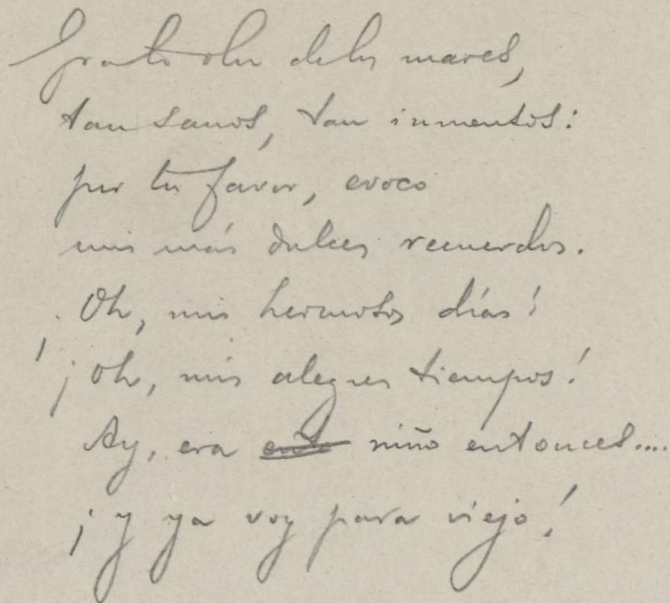 Grato olor de los mares,
tan sanos, tan inmensos:
por tu favor, evoco
mis más dulces recuerdos.
¡Oh, mis hermosos días!
¡oh, mis alegres tiempos!
Ay, era niño entonces....
¡y ya voy para viejo!